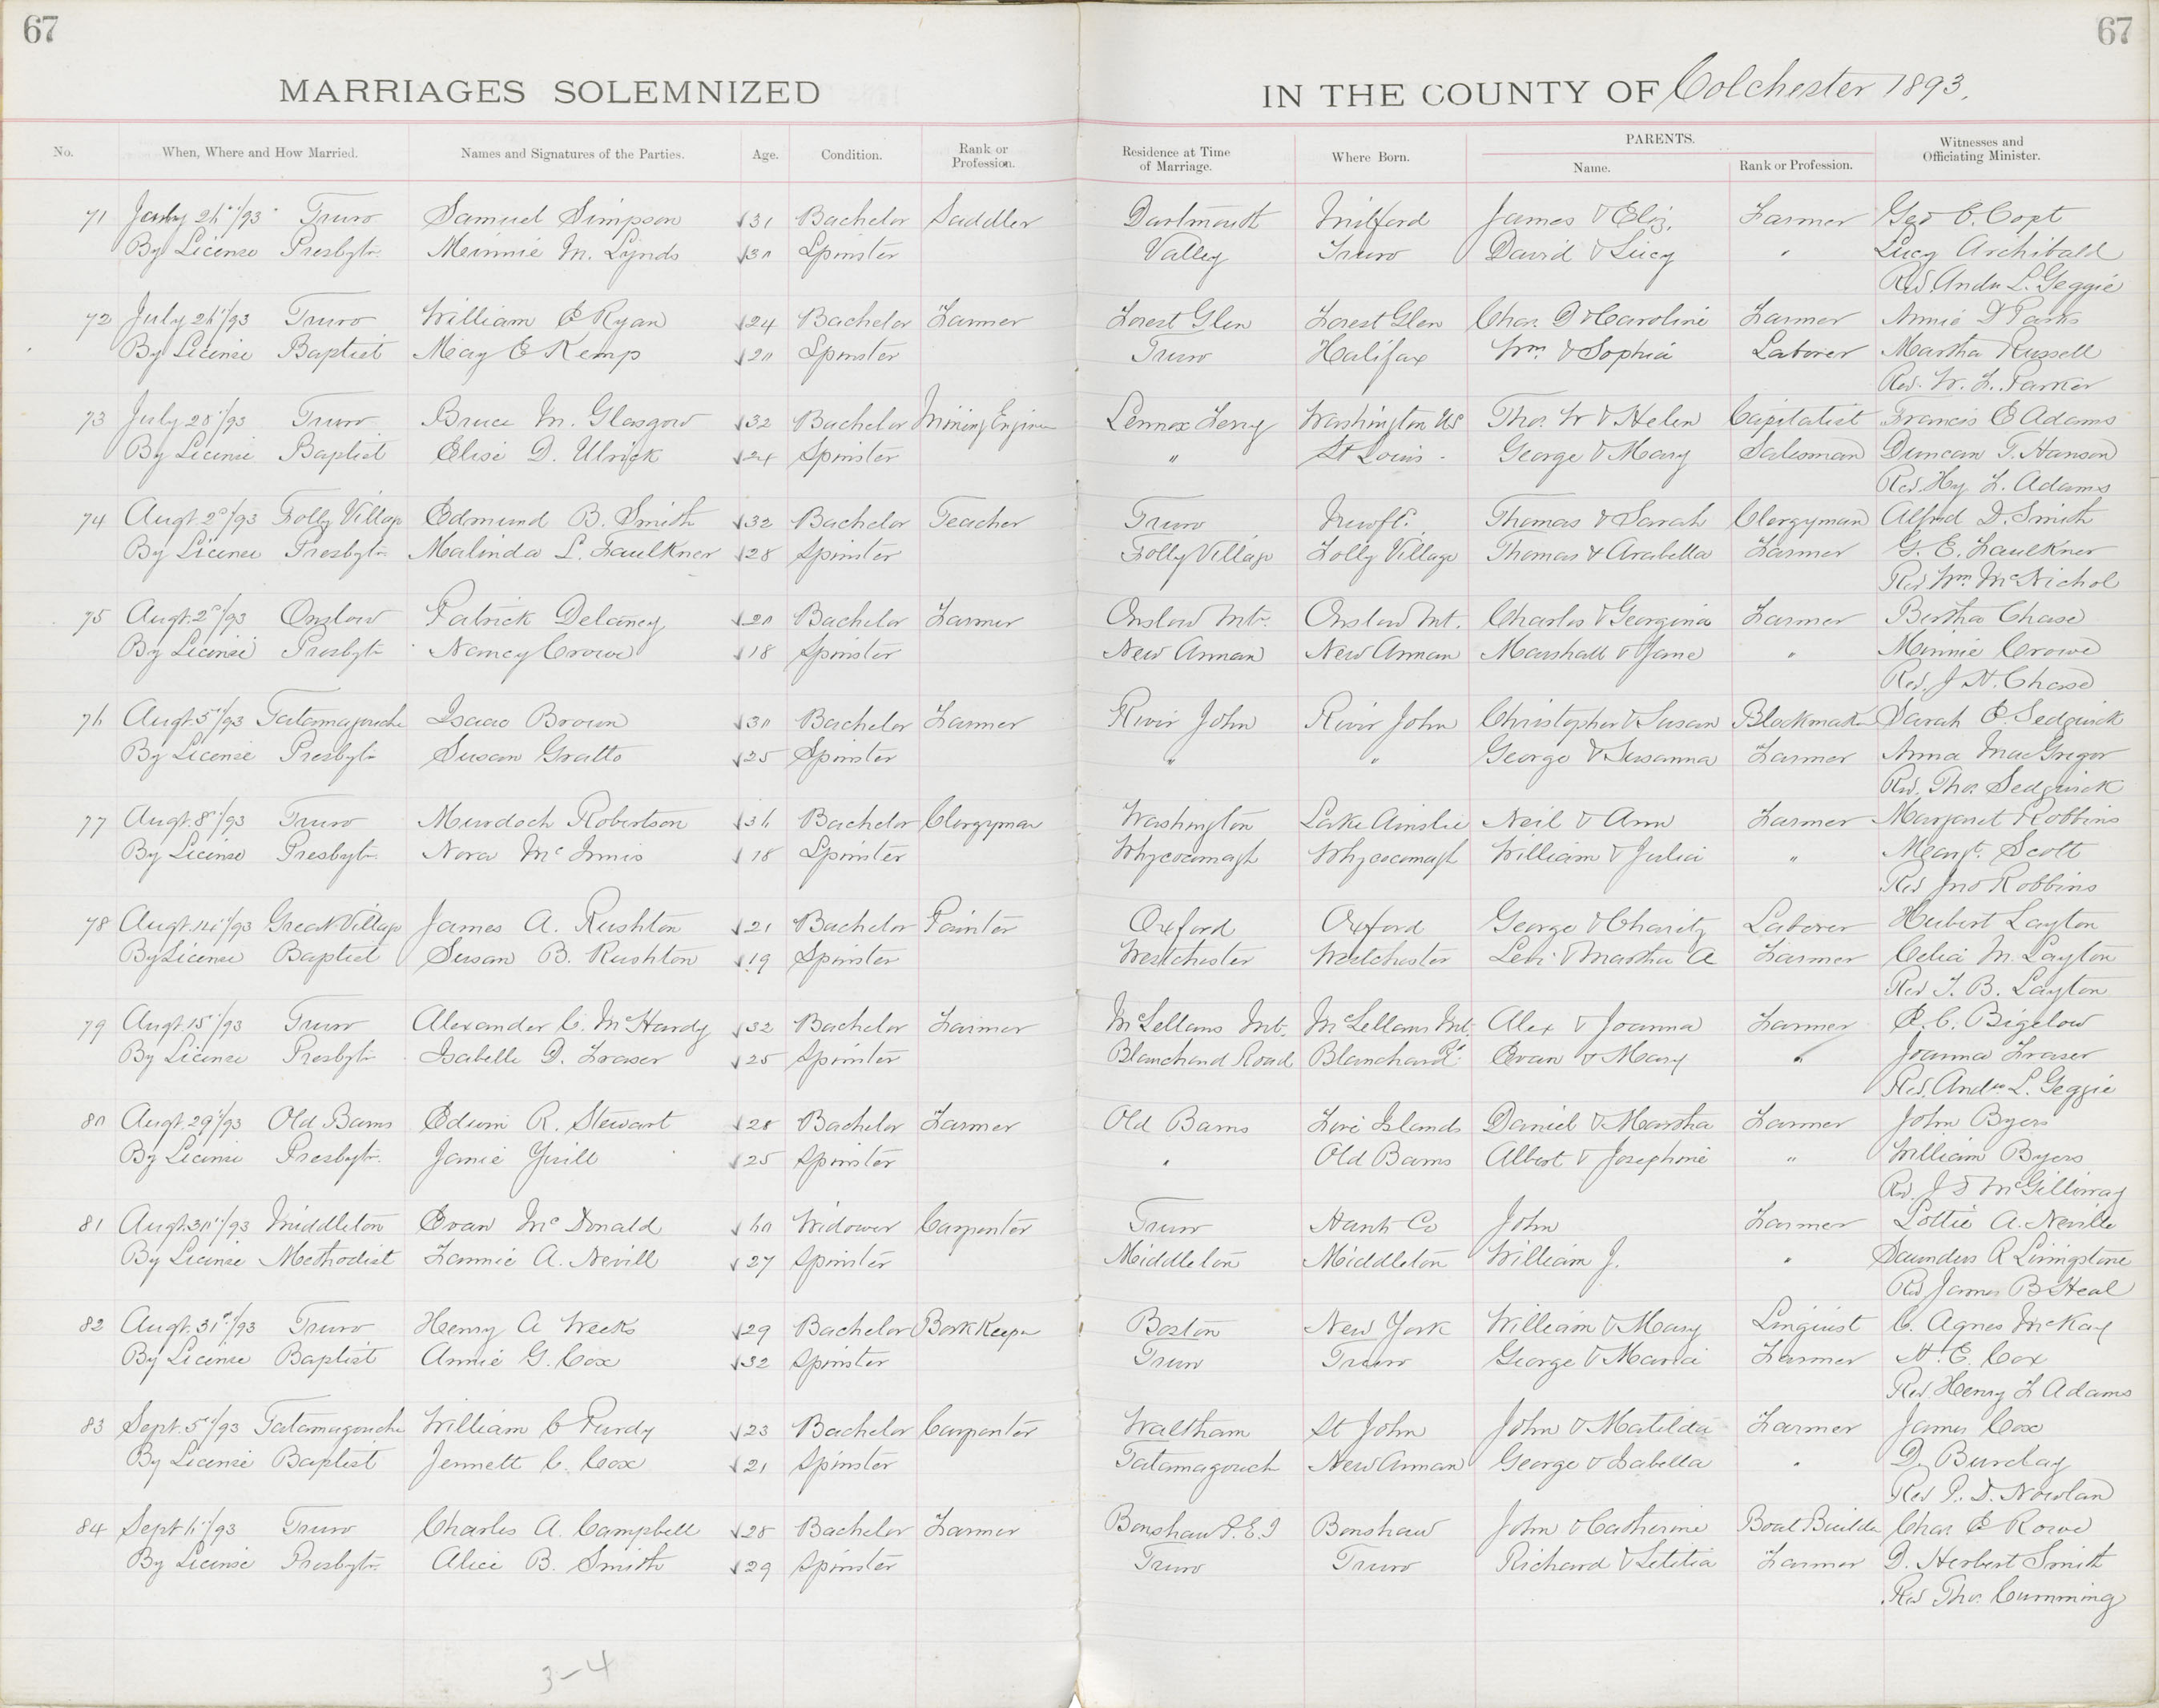 67
67
MARRIAGES SOLEMNIZED
IN THE COUNTY OF Colchester 1893.
No. When, Where and How Married. Names and Signatures of the Parties. Age. Condition. Rank or Profession. Residence at Time of Marriage. Where Born. PARENTS. Name. Rank or Profession. Witnesses and Officiating Minister.
71 26/93 Truro Samuel Simpson 31 Bachelor Saddler Dartmouth Milford James & Eliz. Farmer Geo C. Copt
By License Presbytn Minnie M. Lynds 30 Spinster Valley Truro David & Lucy " Lucy Archibald
Rev Andw L. Geggie
72 July 26/93 Truro William E Ryan 24 Bachelor Farmer Forest Glen Forest Glen Chas. D & Caroline Farmer Annie D Parks
By License Baptist May E Kemp 20 Spinster Truro Halifax Wm & Sophia Laborer Martha Russell
Rev. W. F. Parker
73 July 28/93 Truro Bruce M. Glasgow 32 Bachelor Mining Engineer Lennox Ferry Washington US Thos. W & Helen Capitalist Francis E Adams
By License Baptist Elise D. Ulrick 24 Spinster " St Louis George & Mary Salesman Duncan T. Hanson
Rev. Hy F. Adams
74 Augt 2d/93 Folly Village Edmund B. Smith 32 Bachelor Teacher Truro Newfd. Thomas & Sarah Clergyman Alfred D. Smith
By License Presbytn Malinda L. Faulkner 28 Spinster Folly Village Folly Village Thomas & Arabella Farmer G. E. Faulkner
Rev Wm McNichol
75 Augt. 2d/93 Onslow Patrick Delaney 20 Bachelor Farmer Onslow Mt. Onslow Mt. Charles & Georgina Farmer Bertha Chase
By License Presbytn Nancy Crowe 18 Spinster New Annan New Annan Marshall & Jane " Minnie Crowe
Rev. J H. Chase
76 Augt. 5/93 Tatamagouche Isaac Brown 30 Bachelor Farmer River John River John Christopher & Susan Blockmaker Sarah E. Sedgwick
By License Presbytn Susan Gratto 25 Spinster " " George & Susanna Farmer Anna MacGregor
Rev. Thos. Sedgwick
77 Augt. 8/93 Truro Murdoch Robertson 36 Bachelor Clergyman Washington Lake Ainslie Neil & Ann Farmer Margaret Robbins
By License Presbytn Nora McInnis 18 Spinster Whycocomagh Whycocomagh William & Julia " Margt. Scott
Rev Jno Robbins
78 Augt. 14/93 Great Village James A. Rushton 21 Bachelor Painter Oxford Oxford George & Charity Laborer Hubert Layton
By License Baptist Susan B. Rushton 19 Spinster Westchester Westchester Levi & Martha A Farmer Celia M. Layton
Rev T. B. Layton
79 Augt. 15/93 Truro Alexander C. McHardy 32 Bachelor Farmer McLellans Mt. McLellans Mt. Alex & Joanna Farmer E. C. Bigelow
By License Presbytn Isabelle D. Fraser 25 Spinster Blanchard Road Blanchard Rd. Evan & Mary " Joanna Fraser
Rev. Andw L. Geggie
80 Augt. 29/93 Old Barns Edwin R. Stewart 28 Bachelor Farmer Old Barns Five Islands Daniel & Martha Farmer John Byers
By License Presbytn. Janie Yuill 25 Spinster " Old Barns Albert & Josephine " William Byers
Rev. J D McGillivray
81 Augt. 30/93 Middleton Evan McDonald 60 Widower Carpenter Truro Hants Co John Farmer Lottie A. Neville
By License Methodist Fannie A. Nevill 27 Spinster Middleton Middleton William J. " Saunders R Livingstone
Rev James B Heal
82 Augt. 31st/93 Truro Henry A Weeks 29 Bachelor Book Keeper Boston New York William & Mary Linguist C. Agnes McKay
By License Baptist Annie G. Cox 32 Spinster Truro Truro George & Maria Farmer H. E. Cox
Rev. Henry F Adams
83 Sept. 5/93 Tatamagouche William C Purdy 23 Bachelor Carpenter Waltham St John John & Matilda Farmer James Cox
By License Baptist Jennett C. Cox 21 Spinster Tatamagouch New Annan George & Isabella " D. Barclay
Rev P. D. Nowlan
84 Sept 6/93 Truro Charles A. Campbell 28 Bachelor Farmer Bonshaw P.E.I Bonshaw John & Catherine Boat Builder Chas. E Rowe
By License Presbytn. Alice B. Smith 29 Spinster Truro Truro Richard & Letitia Farmer D. Herbert Smith
Rev Thos. Cumming
3-4